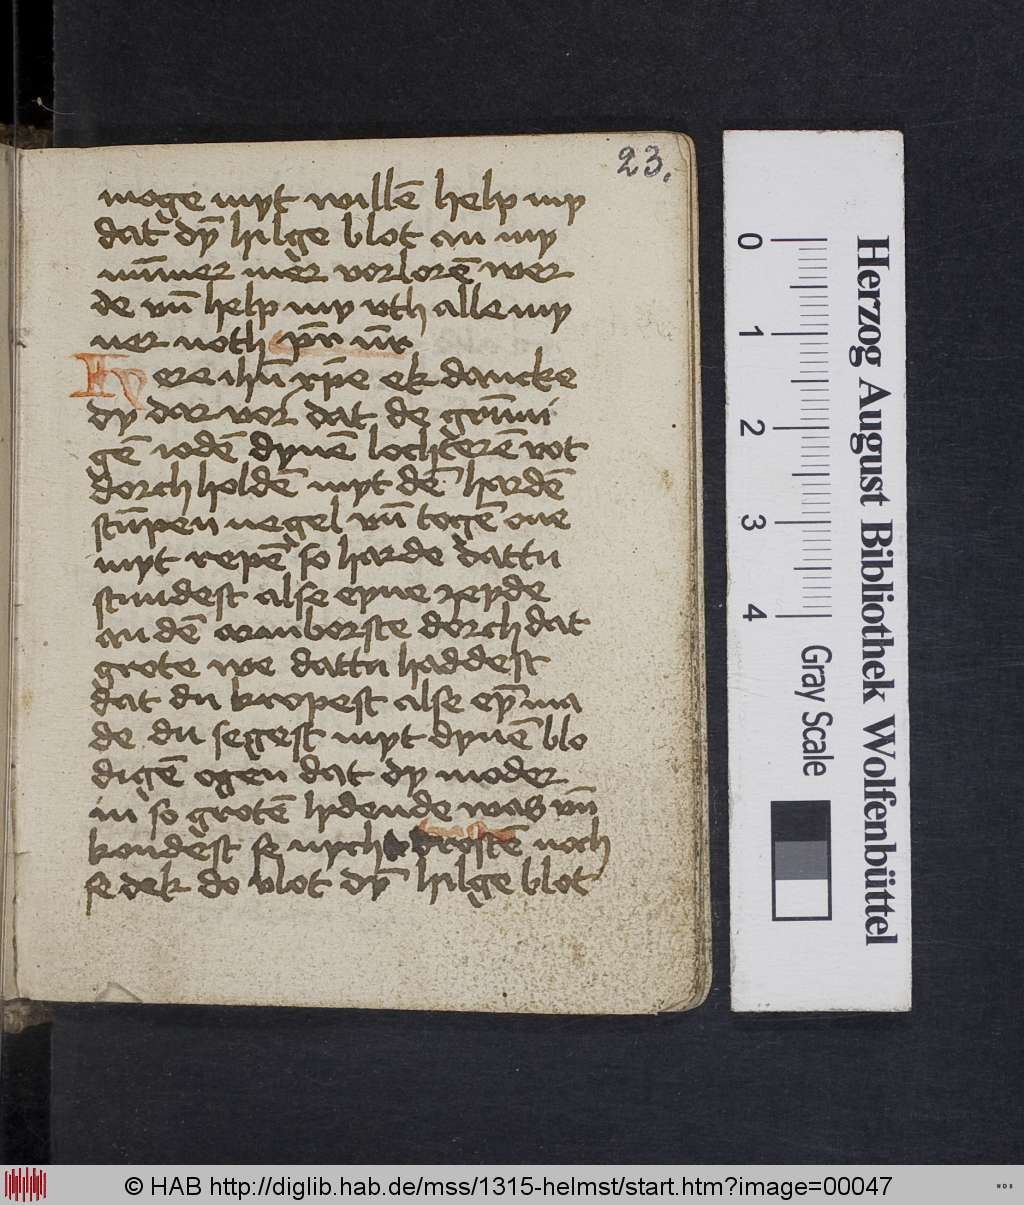 23.
moge myt willē help my
dat dȳ hilge blot an my
nūmer mer vorlorē wer
de vn̄ help my vth alle my
ner noth pr̄ nr̄
Ere ihū xp̄e ek dancke
dy dar vor dat de grīmi
gē iodē dynē lochterē vot
dorch holdē myt dē hardē
stūpen negel vn̄ togē one
myt repē so harde dattu
stundest alse eyne zeyde
an dē armborste dorch dat
grote we dattu haddest
dat du kropest alse eȳ ma
de du segest myt dynē blo
digē ogen dat dy moder
in so grotē lydende was vn̄
kondest se nycht trostē noch
se dek do vlot dȳ hilge blot
Herzog August Bibliothek Wolfenbüttel
0 1 2 3 4
Gray Scale
© HAB http://diglib.hab.de/mss/1315-helmst/start.htm?image=00047